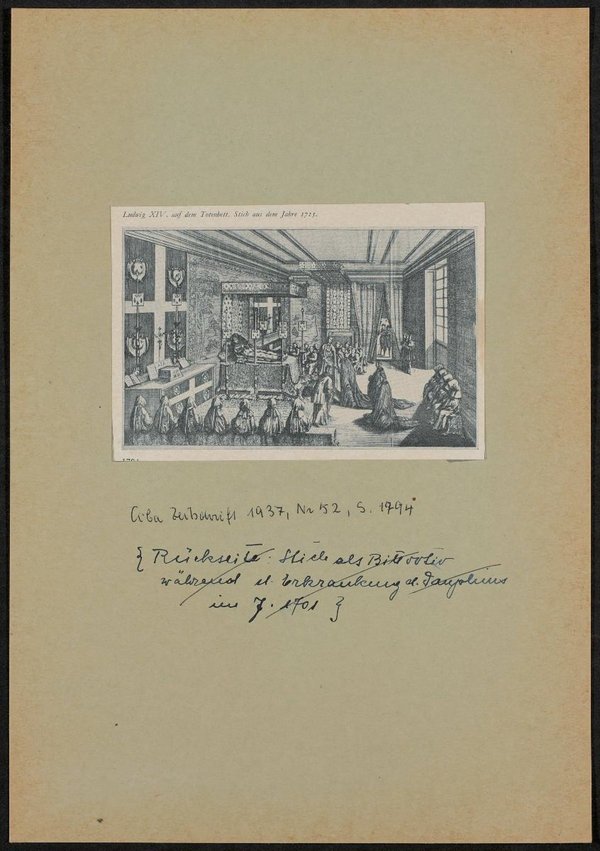 Ludwig XIV. auf dem Totenbett. Stich aus dem Jahre 1715.
1794
Ciba Zeitschrift 1937, Nr 52, S. 1794
{ Rückseite: Stich als Bittvotiv
während d. Erkrankung d. Dauphins
im J. 1701 }